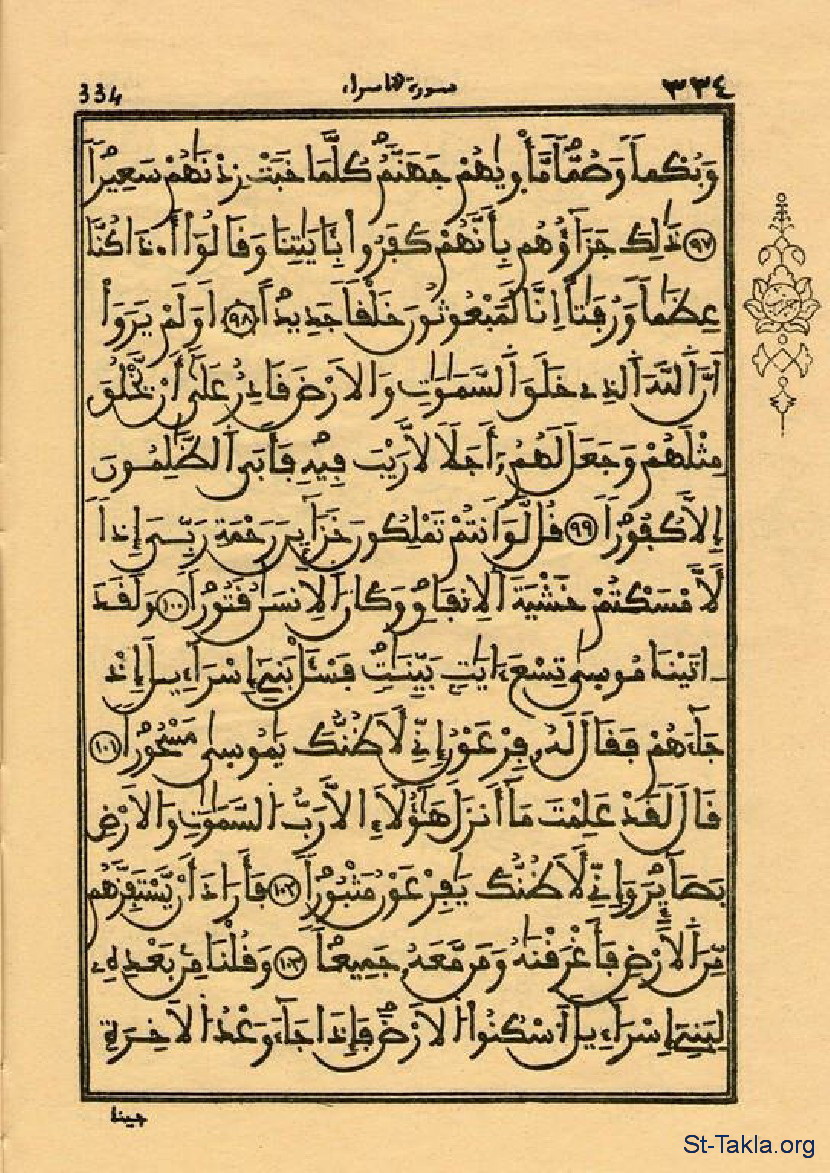 334 سورة الاسراء ٣٣٤
وَبُكْماً وَصُمّاً مَّأْوِيٰهُمْ جَهَنَّمُ كُلَّمَا خَبَتْ زِدْنَٰهُمْ سَعِيراً
٩٧ ذَٰلِكَ جَزَآؤُهُم بِأَنَّهُمْ كَفَرُواْ بِـَٔايَٰتِنَا وَقَالُوٓاْ أَ.ذَا كُنَّا
عِظَٰماً وَرُفَٰتاً اِنَّا لَمَبْعُوثُونَ خَلْقاً جَدِيداً ٩٨ اَوَلَمْ يَرَوَاْ
اَنَّ اَللَّهَ اَلذِے خَلَقَ اَلسَّمَٰوَٰتِ وَالَارْضَ قَادِرٌ عَلَىٰٓ أَنْ يَّخْلُقَ
مِثْلَهُمْ وَجَعَلَ لَهُمُۥٓ أَجَلاً لاَّ رَيْبَ فِيهِ فَأَبَى اَلظَّٰلِمُونَ
إِلاَّ كُفُوراً ٩٩ قُل لَّوَ اَنتُمْ تَمْلِكُونَ خَزَآئِنَ رَحْمَةِ رَبِّىَ إِذاً
لَّأَمْسَكْتُمْ خَشْيَةَ اَلِانفَاقِ وَكَانَ اَلِانسَٰنُ قَتُوراً ١٠٠ وَلَقَدَ
ـ اتَيْنَا مُوسىٰ تِسْعَ ءَايَٰتِۭ بَيِّنَٰتٍ فَسْـَٔلْ بَنِےٓ إِسْرَآءِيلَ إِذْ
جَآءَهُمْ فَقَالَ لَهُۥ فِرْعَوْنُ إِنِّے لَأَظُنُّكَ يَٰمُوسىٰ مَسْحُوراً ١٠١
قَالَ لَقَدْ عَلِمْتَ مَآ أَنزَلَ هَٰٓؤُلَآءِ اِلاَّ رَبُّ اُلسَّمَٰوَٰتِ وَالَارْضِ
بَصَآئِرَ وَإِنِّے لَأَظُنُّكَ يَٰفِرْعَوْنُ مَثْبُوراً ١٠٢ فَأَرَادَ أَنْ يَّسْتَفِزَّهُم
مِّنَ اَلَارْضِ فَأَغْرَقْنَٰهُ وَمَن مَّعَهُۥ جَمِيعاً ١٠٣ وَقُلْنَا مِنۢ بَعْدِهِۦ
لِبَنِےٓ إِسْرَآءِيلَ اَسْكُنُواْ اُلَارْضَ فَإِذَا جَآءَ وَعْدُ اُلَاخِرَةِ
جينا
St-Takla.org